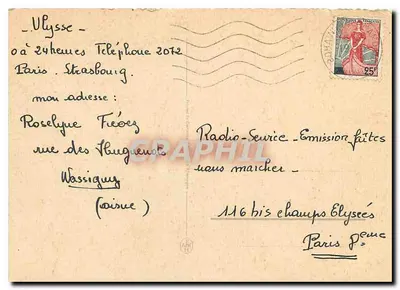 - Ulysse -
0 à 24 heures Téléphone 2072
Paris. Strasbourg.
mon adresse :
Roselyne
rue des Huguenots
Wassigny
(aisne)
Radio-Service - Emission faites
nous marcher -
116 bis champs Elysées
Paris 8eme
25F
CPAPHIL